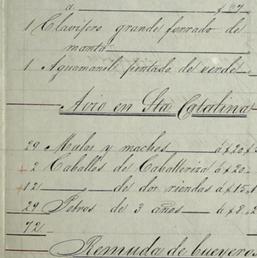 a. $ 67
1 Clavijero grande forrado de
manta
1 Aguamanil pintado de verde
Avio en Sta Catalina
29 Mulas y machos á $ 20
2 Caballos de Caballeriza á $ 20
12 — de dos riendas á $ 15
29 Potros de 3 años á $ 8
72
Remuda de bueyeros